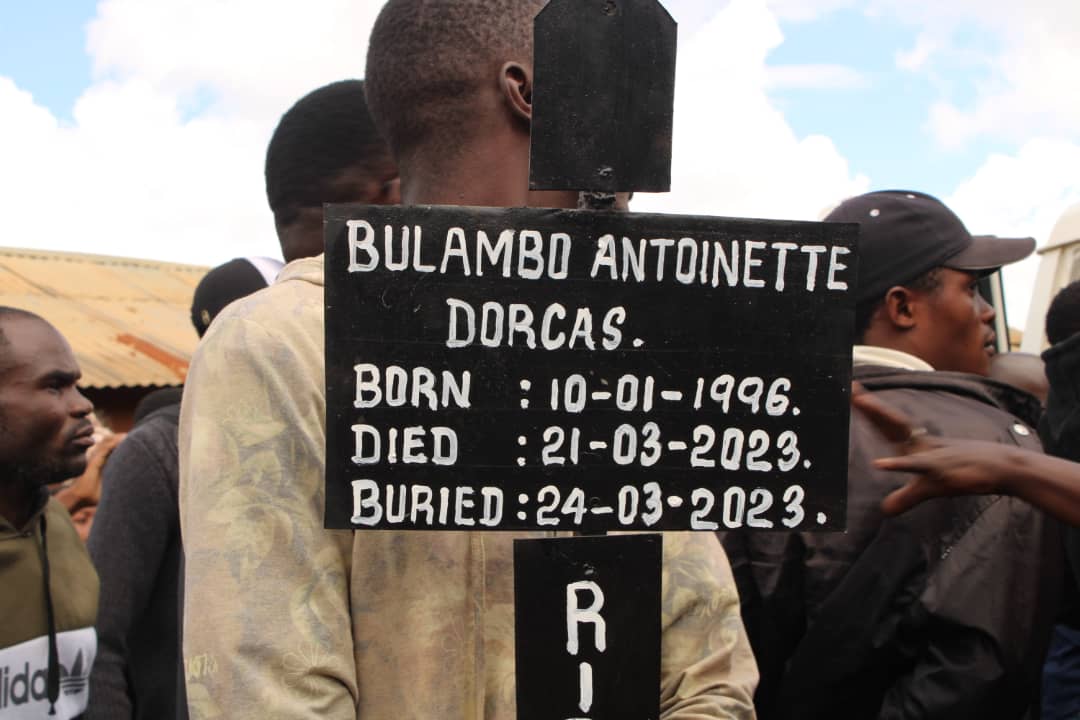 BULAMBO ANTOINETTE
DORCAS.
BORN : 10-01-1996.
DIED : 21-03-2023.
BURIED : 24-03-2023.
R
I